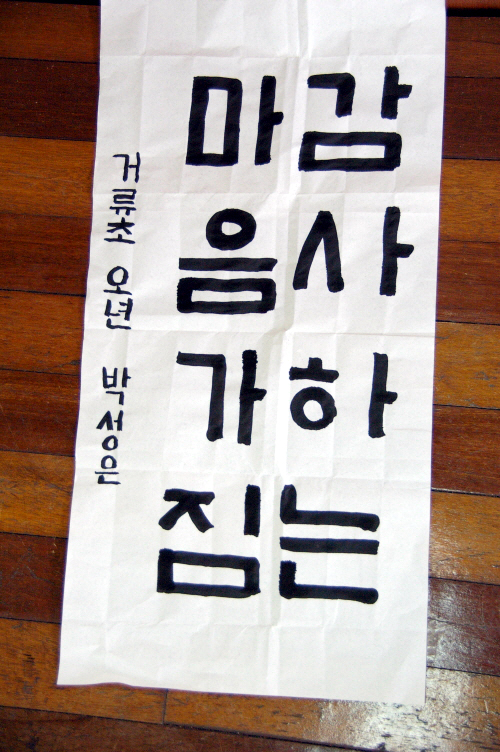 감사하는
마음가짐
거류초 오년 박성은